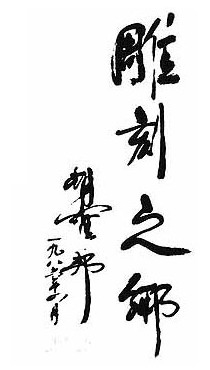 雕刻之鄉
胡耀邦
一九八六年八月